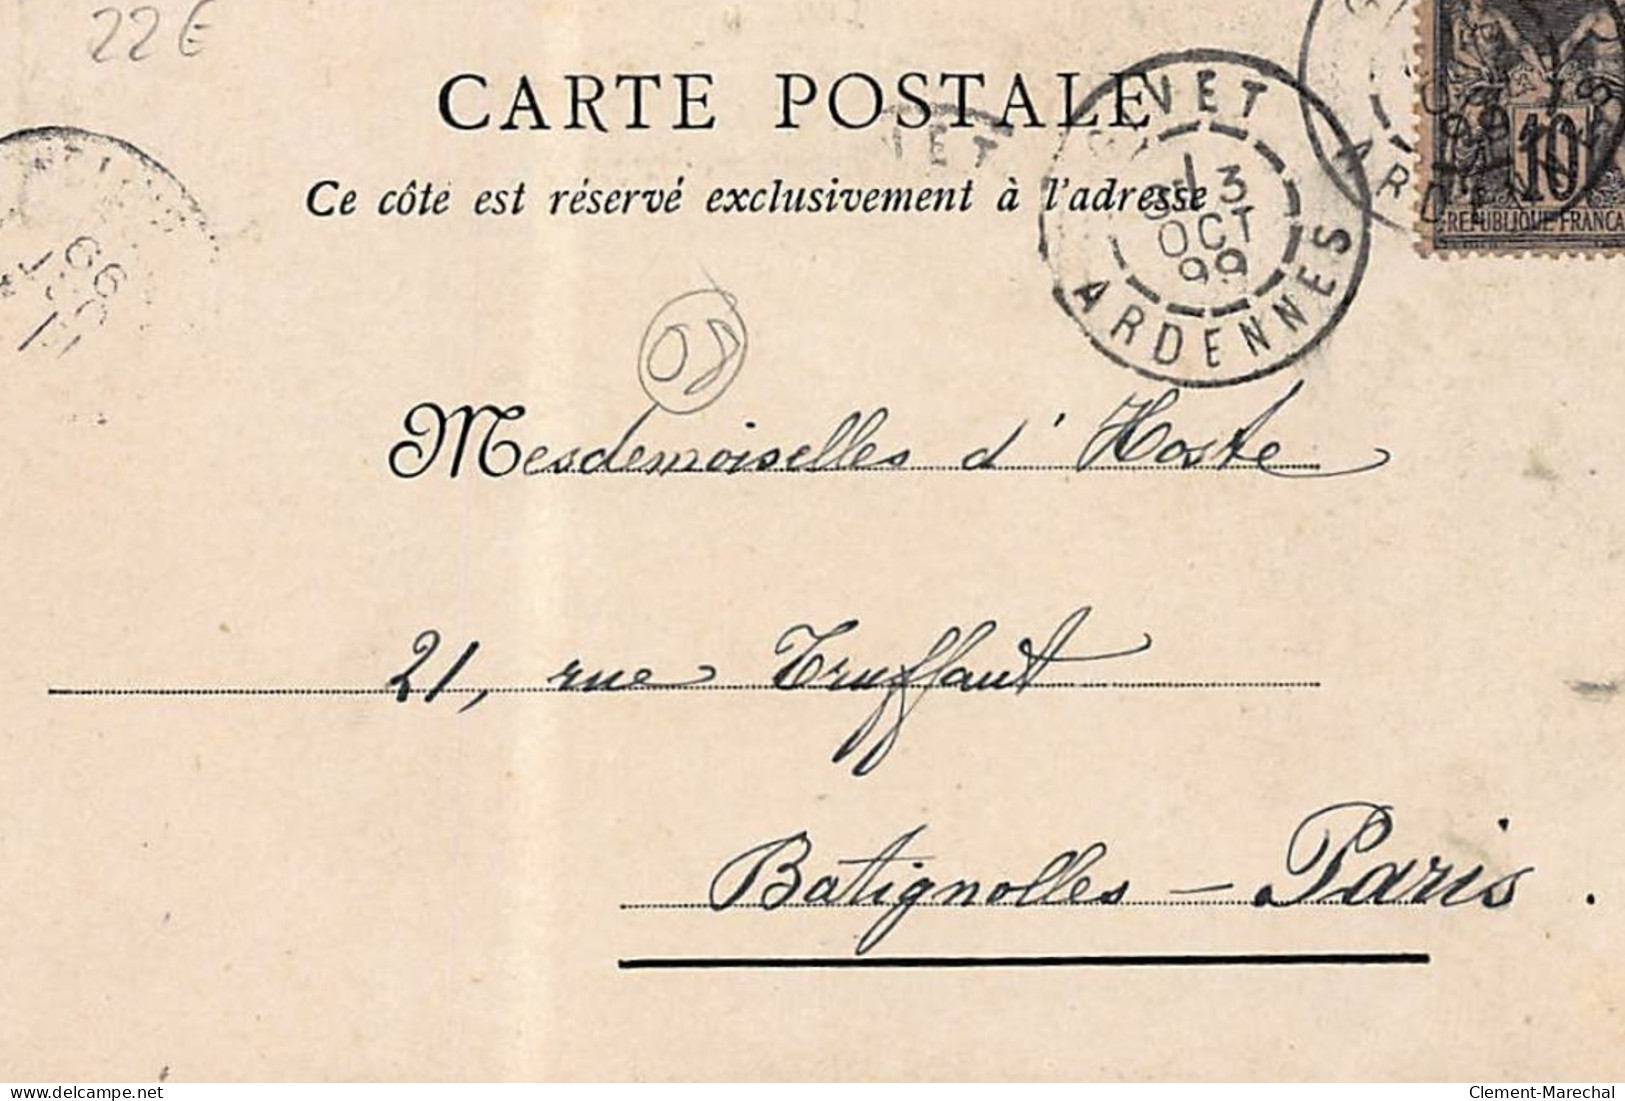 22 €
CARTE POSTALE
Ce côté est réservé exclusivement à l'adresse
VET
3
OCT
99
ARDENNES
ARDENNES
10
REPUBLIQUE FRANCA
ET
99
08
Mesdemoiselles d'Hoste
21, rue Truffaut
Batignolles - Paris.
delcampe.net
Clement-Marechal